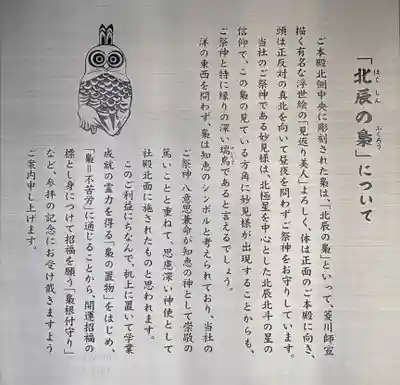 「北辰の梟」について
ほくしん
ふくろう
ご本殿北側中央に彫刻された梟は、「北辰の梟」といって、菱川師宣
描く有名な浮世絵の「見返り美人」よろしく、体は正面のご本殿に向き、
頭は正反対の真北を向いて昼夜を問わずご祭神をお守りしています。
当社のご祭神である妙見様は、北極星を中心とした北辰北斗の星の
信仰で、この梟の見ている方角に妙見様が出現することからも、
ご祭神と特に縁りの深い瑞鳥であると言えるでしょう。
洋の東西を問わず、梟は知恵のシンボルと考えられており、当社の
ご祭神 八意思兼命が知恵の神として崇敬の
篤いことと重ねて、思慮深い神使として
社殿北面に施されたものと思われます。
このご利益にちなんで、机上に置いて学業
成就の霊力を得る「梟の置物」をはじめ、
「梟=不苦労」に通じることから、開運招福の
標とし身につけて招福を願う「梟根付守り」
など、参拝の記念にお受け戴きますよう
ご案内申し上げます。